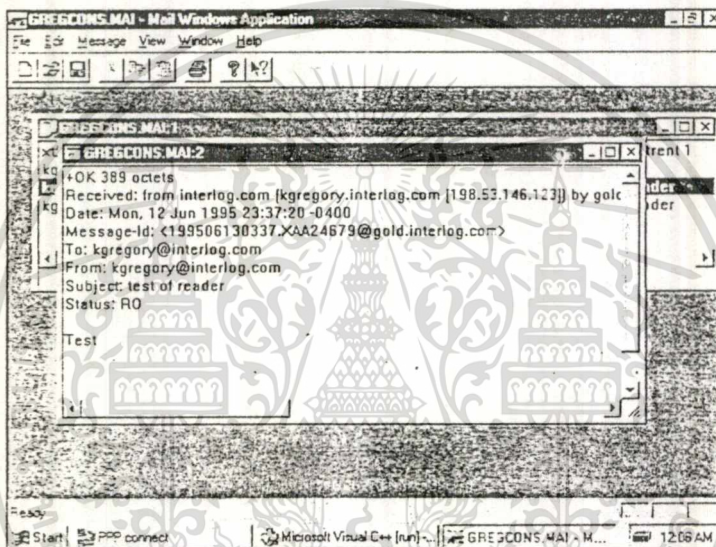 GREGCONS.MAI - Mail Windows Application
File Edit Message View Window Help
GREGCONS.MAI:1
GREGCONS.MAI:2
trent 1
+OK 389 octets
Received: from interlog.com (kgregory.interlog.com [198.53.146.123]) by gold
Date: Mon, 12 Jun 1995 23:37:20 -0400
Message-Id: <199506130337.XAA24679@gold.interlog.com>
To: kgregory@interlog.com
From: kgregory@interlog.com
Subject: test of reader
Status: RO
Test
ader
ader
Ready
Start PPP connect Microsoft Visual C++ [run] -... GREGCONS.MAI - M... 12:06 AM